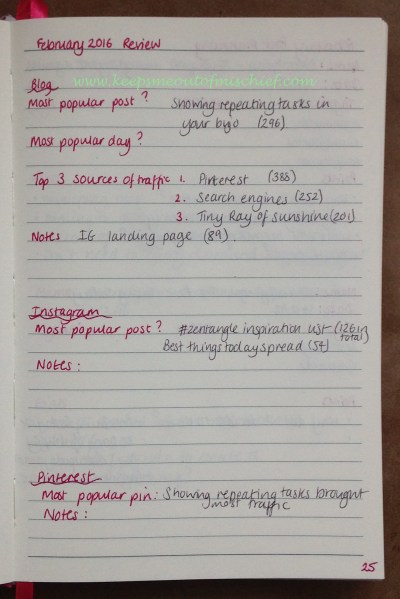 February 2016 Review
www.keepsmeoutofmischief.com
Blog
Most popular post? Showing repeating tasks in
your bujo (296)
Most popular day?
Top 3 sources of traffic 1. Pinterest (388)
2. Search engines (252)
3. Tiny Ray of Sunshine (201)
Notes IG landing page (89).
Instagram
Most popular post? #zentangle inspiration list (126 in
total)
Best things today spread (54)
Notes:
Pinterest
Most popular pin: Showing repeating tasks brought
most traffic
Notes:
25